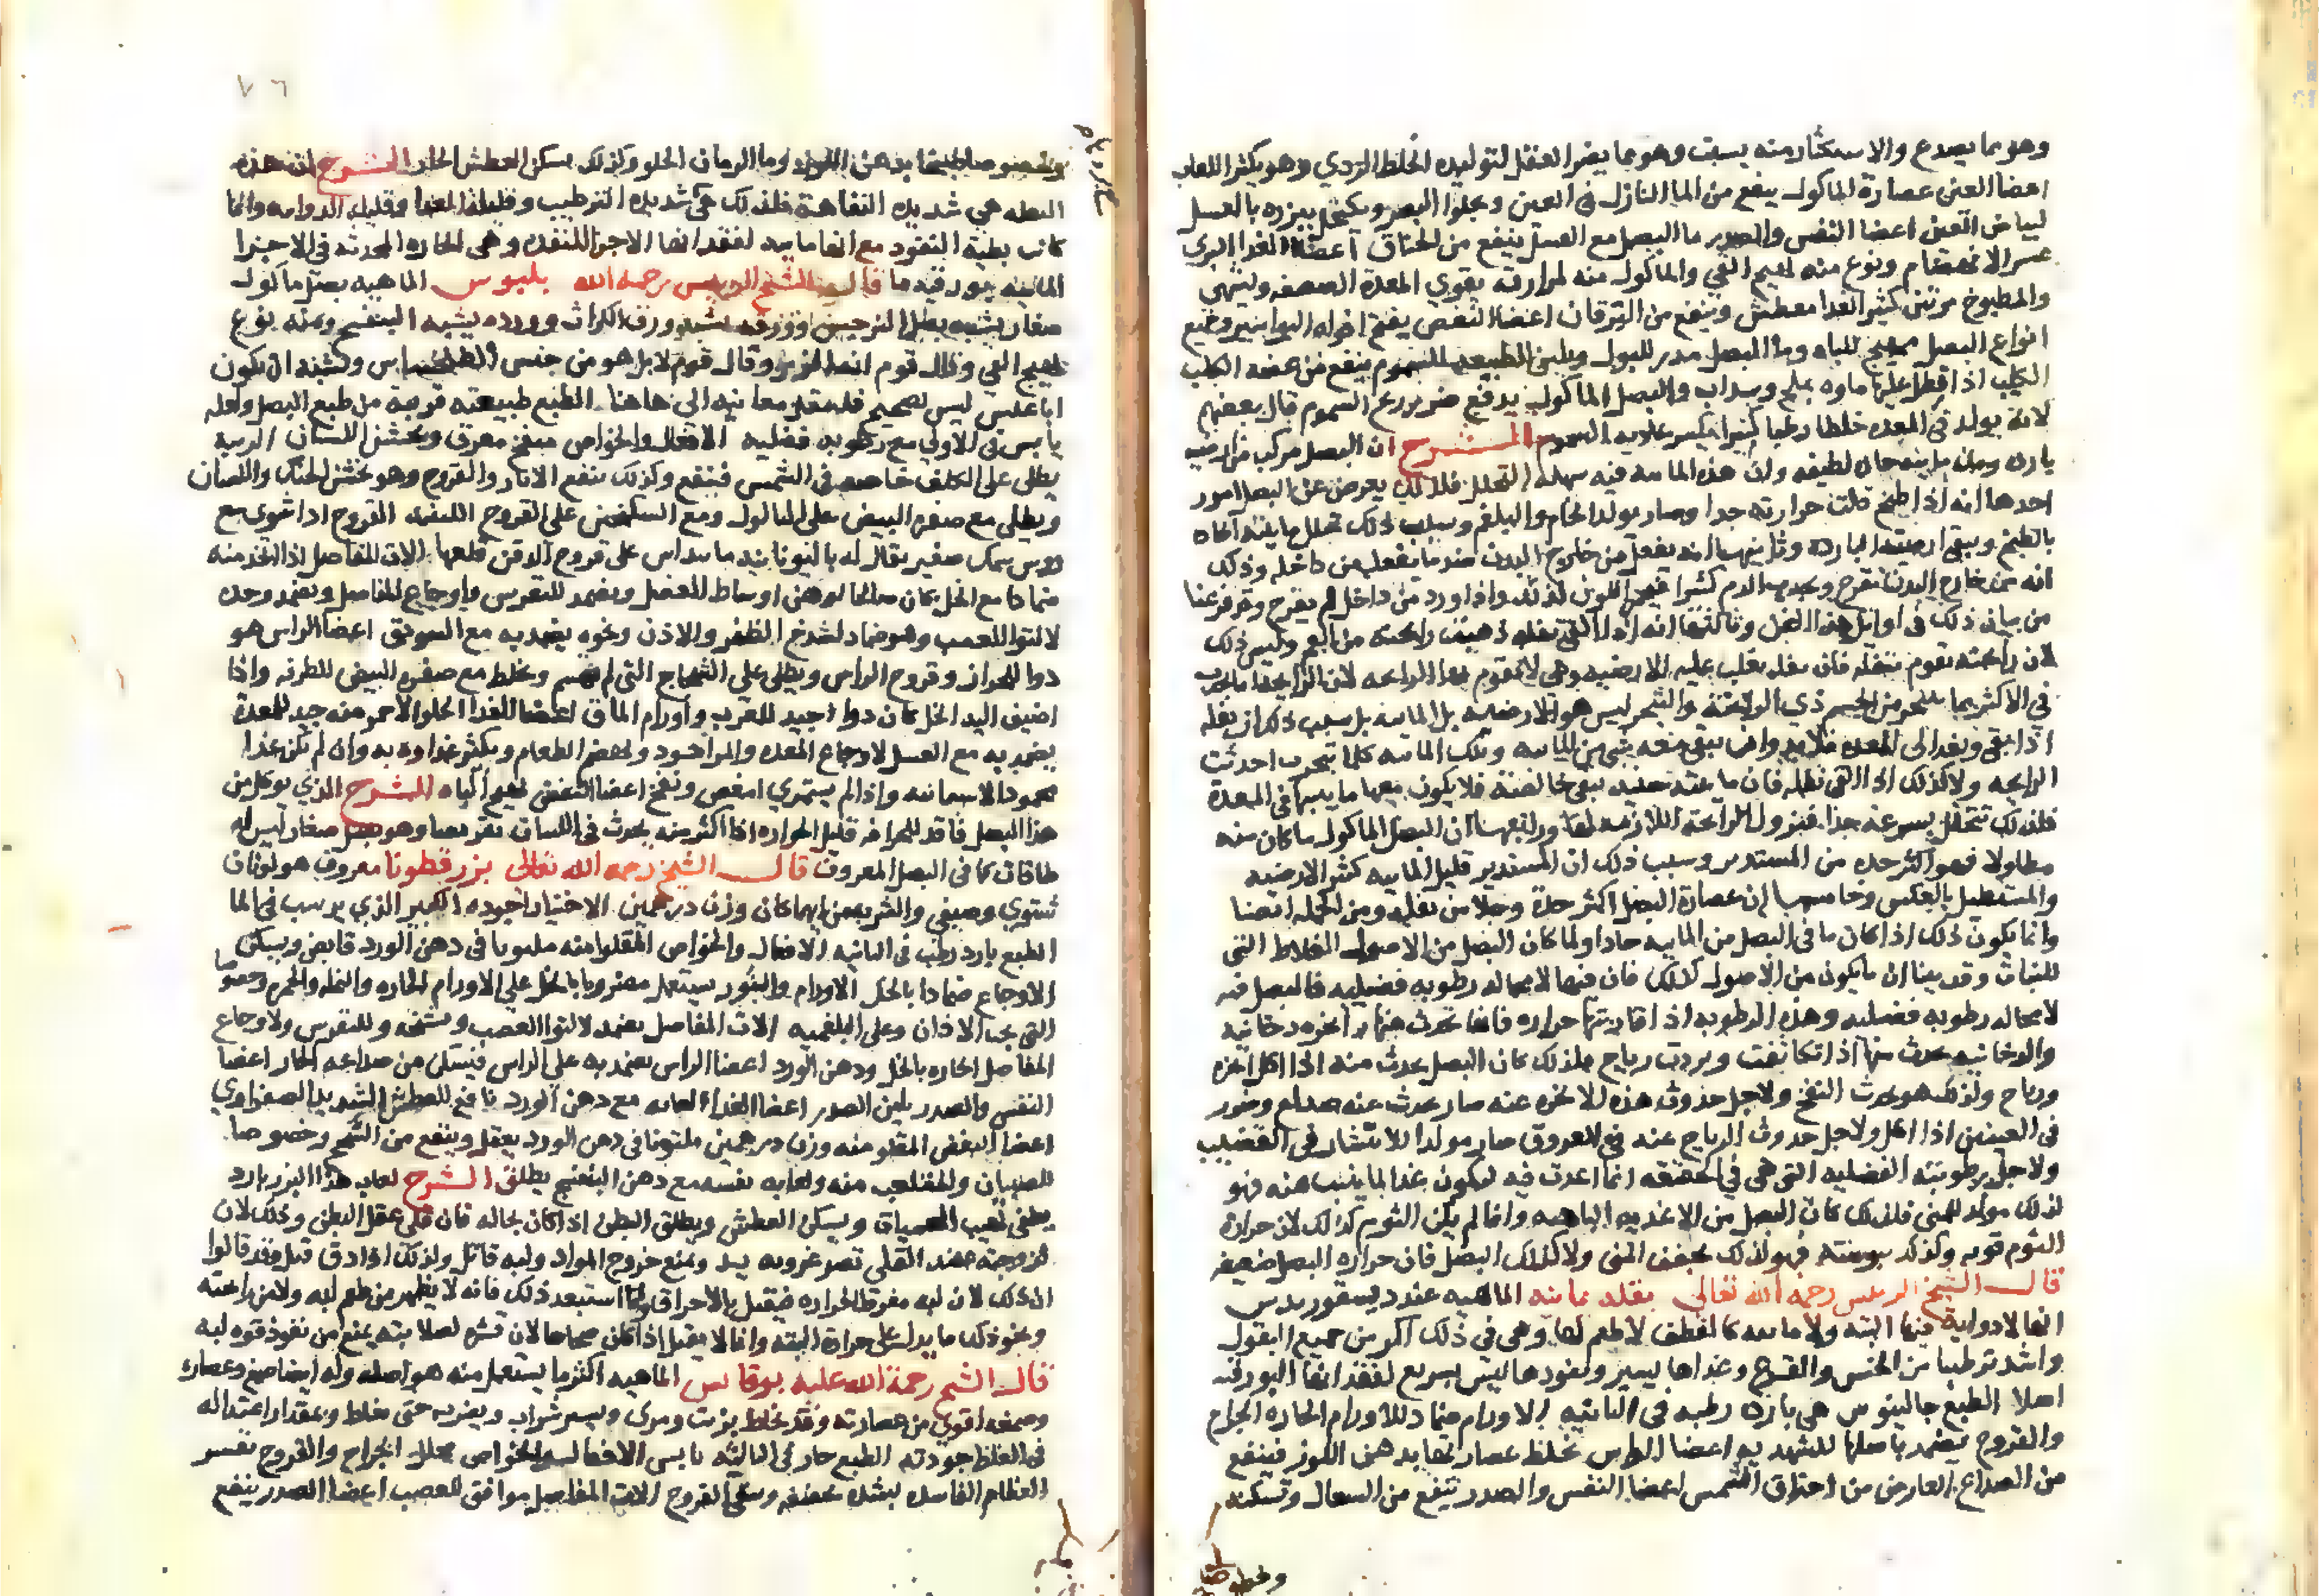 وهو مما يصدع والاستكثار منه يسبت وهو مما يضر العقل لتوليده الخلط الردي وهو يكثر اللعاب
اعضا العين عصارة الماكول ينفع من الما النازل في العين ويجلوا البصر ويكتحل ببزره بالعسل
لبياض العين اعضا النفس والصدر ما البصل مع العسل ينفع من الخناق اعضا الغذا البري
عسر الانهضام ونوع منه يهيج القي والماكول منه لمرارته يقوي المعدة الضعيفه ويشهي
والمطبوخ مرتين كثير الغدا معطش وينفع من اليرقان اعضا النفض يفتح افواه البواسير وجميع
انواع البصل مهيج للباه وما البصل مدر للبول ويلين الطبيعه السموم ينفع من عضة الكلب
الكلب اذا قطر عليها ماوه بملح وسداب والبصل الماكول يدفع ضرر ريح السموم قال بعضهم
لانه يولد في المعده خلطا رطبا كثيرا يكسر عادية السموم الشرح ان البصل مركب من ارضيه
بارده ومن مايية حاره لطيفه ولان هذه الماييه فيه سهلة التحلل فلذلك يعرض عن البصل امور
احدها انه اذا طبخ قلت حرارته جدا وصار يولد الخام والبلغم وسبب ذلك تحلل مايته الحاه
بالطبخ وبقي ارضيته الباردة وثانيهما انه يفعل من خارج البدن ضد ما يفعله من داخله وذلك
انه من خارج البدن يقرح ويجذب الدم كثيرا فيحمر اللون لذلك واذا ورد من داخل لم يقرح وقد فرغنا
من بيان ذلك في اوايل هذا الفن وثالثها انه اذا القي ثفله ذهبت رايحته من الفم وليس ذلك
لان رايحته تقوم بثفله فان ثفله يغلب عليه الارضيه وهي لا تقوم بها الرايحه لان الرايحة انما تحدث
في الاكثر بما يتبخر من الجسم ذي الرايحة والمتبخر ليس هو الارضيه بل الماييه بل سبب ذلك ان ثفله
اذا بقي ونفذ الى المعده فلا بد وان يبقى معه شي من الماييه وتلك الماييه كلما تبخرت احدثت
الرايحه ولا كذلك اذا القي ثفله فان ما يبقى حينيذ يبقى خالصة فلا يكون معها ما يثبتها في المعدة
فلذلك تتحلل بسرعه جدا فتزول الرايحة اللازمه لها ورابعها ان البصل الماكول ما كان منه
مطاولا فهو اكثر حده من المستدير وسبب ذلك ان المستدير قليل الماييه كثير الارضيه
والمستطيل بالعكس وخامسها ان عصارة البصل اكثر حدة وجلا من ثفله ومن جملته ايضا
وانما يكون ذلك اذا كان ما في البصل من الماييه حادا ولما كان البصل من الاصول الغلاظ التي
للنبات وقد بينا ان ما يكون من الاصول كذلك فان فيها لا محاله رطوبه فضليه فالبصل فيه
لا محاله رطوبه فضليه وهذه الرطوبه اذا قارنتها حراره فانها تحدث منها ابخره دخانيه
والدخانيه يحدث منها اذا تكاثفت وبردت رياح فلذلك كان البصل يحدث منه اذا اكل ابخره
ورياح ولذلك هو يحدث النفخ ولاجل حدوث هذه الابخره عنه صار يحدث عنه صداع وضرر
في العينين اذا اكل ولاجل حدوث الرياح عنه في العروق صار مولدا للانتشار في القضيب
ولاجل رطوبته الفضليه التي هي في الحقيقه انما اعدت فيه ليكون غذا لما ينبت عنه فهو
لذلك مولد للمني فلذلك كان البصل من الاغذيه الباهيه وانما لم يكن الثوم كذلك لان حرارة
الثوم قويه وكذلك يبوسته فهو لذلك يجفف المني ولا كذلك البصل فان حراره البصل ضعيفه
قال الشيخ الرييس رحمه الله تعالى بقله يمانيه الماهيه عند ديسقوريدس
انها لا دوايية فيها البته ولا ماييه كالقطف لا طعم لها وهي في ذلك اكثر من جميع البقول
واشد ترطيبا من الخس والقرع وغذاها يسير ونفوذها ليس بسريع لفقدانها البورقيه
اصلا الطبع جالينوس هي بارده رطبه في الثانيه الاورام ضماد للاورام الحاره الجراح
والقروح يضمد باصلها للشهديه اعضا الراس يخلط عصارتها بدهن اللوز فينفع
من الصداع العارض من احتراق الشمس اعضا النفس والصدر تنفع من السعال وتسكنه
وخصوصا
٧٦
وخصوصا طبيخها بدهن اللوز وما الرمان الحلو وكذلك يسكن العطش الحار الشرح ان هذه
البقله هي شديده التفاهة فلذلك هي شديده الترطيب وقليلة الغذا وقليله الدوايه وانما
كانت بطيه النفوذ مع انها ماييه لفقدانها الاجزا المنفذه وهي الحاره المحدثه في الاجزا
الماييه بورقيه ما قال الشيخ الرييس رحمه الله بلبوس الماهيه بصل ماكول
صغار يشبه بصل النرجس وورقه يشبه ورق الكراث وورده يشبه البنفسج ومنه نوع
يهيج القي وقال قوم انه الزيز وقال قوم لا بل هو من جنس الطلخياس ويشبه ان يكون
يابس في الاولى مع رطوبه فضليه الافعال والخواص منفخ معرق ويخشن اللسان الزينه
يطلى على الكلف خاصه في الشمس فينفع وكذلك ينفع الاثار والقروح وهو يخشن الحنك واللسان
ويطلى مع صفرة البيض على الثاليل ومع السكنجبين على القروح اللبنيه القروح اذا شوي مع
روس سمك صغير يقال له باليونانيه ماينداس على قروح الذقن قلعها الات المفاصل اذا اتخذ منه
ضمادا مع الخل كان صالحا لوهن اوساط العضل ويضمد للنقرس واوجاع المفاصل ويضمد وحده
لالتوا العصب وهو ضماد لشدخ الظفر والاذن ونحوه يضمد به مع السويق اعضا الراس هو
دوا للحزاز وقروح الراس ويطلى على الشجاج التي لم تهشم ويخلط مع صفره البيض للطرفه واذا
اضيف اليه الخل كان دوا جيد للغرب واورام الماق اعضا الغذا الحلو الاحمر منه جيد للمعدة
يضمد به مع العسل لاوجاع المعده والمر اجود ويهضم الطعام ويكثر غذاوه به وان لم يكن غذا
محمودا لاسمانه واذا لم يستمري امغص ونفخ اعضا النفض يهيج الباه الشرح الذي يوكل من
هذا البصل فاقد للحرافه قليل الحراره اذا اكثر منه يحدث في اللسان تقرحا وهو بصل صغار ليس له
طاقات كما في البصل المعروف قال الشيخ رحمه الله تعالى بزر قطونا معروف هو لونان
شتوي وصيفي والشربه من ايهما كان وزن درهمين الاختيار اجوده الكبير الذي يرسب في الما
الطبع بارد رطب في الثانيه الافعال والخواص المقلو منه ملتوتا في دهن الورد قابض ويسكن
الاوجاع ضمادا بالخل الاورام والبثور يستعمل مضروبا بالخل على الاورام الحاره والنمله والحمره وخصوصا
التي تحت الاذان وعلى البلغميه الات المفاصل يضمد لالتوا العصب وتشنجه وللنقرس ولاوجاع
المفاصل الحاره بالخل ودهن الورد اعضا الراس يضمد به على الراس فيسكن من صداعه الحار اعضا
النفس والصدر يلين الصدر اعضا الغذا لعابه مع دهن الورد نافع للعطش الشديد الصفراوي
اعضا النفض المقلو منه وزن درهمين ملتوتا في دهن الورد يعقل وينفع من السحج وخصوصا
للصبيان والمتلعب منه ولعابه نفسه مع دهن البنفسج يطلق الشرح لعاب هذا البزر بارد
يطفي لهيب الحميات ويسكن العطش ويطلق البطن اذا كان بحاله فان قلي عقل البطن وذلك لان
لزوجته عند القلي تصير غرويه يسد ويمنع خروج المواد ولبه قاتل ولذلك اذا دق قتل وقد قالوا
ان ذلك لان لبه مفرط الحراره فيقتل بالاحراق وانا استبعد ذلك فانه لا يظهر من طعم لبه ولا من رايحته
ونحو ذلك ما يدل على حرارة البته وانما لا يقتل اذا كان صحاحا لان قشره لصلابته يمنع من نفوذ قوه لبه
قال الشيخ رحمة الله عليه بوقاس الماهيه اكثر ما يستعمل منه هو اصله وله ايضا صمغ وعصارة
وصمغه اقوى من عصارته وقد يخلط بزيت ومري ويسير شراب ويضرب حتى يغلظ وبمقدار اعتداله
في الغلظ جودته الطبع حار في الثالثه يابس الافعال والخواص محلل الجراح والقروح تقشر
العظام الفاسده لشده تجفيفه وينقي القروح الات المفاصل موافق للعصب اعضا الصدر ينفع